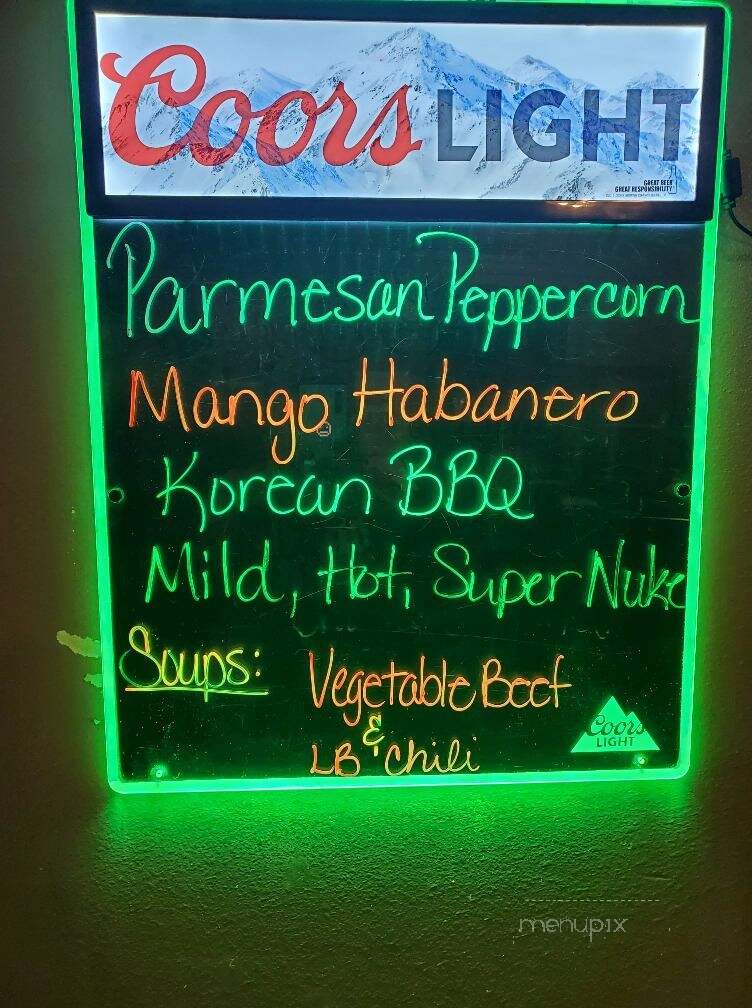 Coors LIGHT
GREAT BEER
GREAT RESPONSIBILITY
Parmesan Peppercorn
Mango Habanero
Korean BBQ
Mild, Hot, Super Nuke
Soups: Vegetable Beef
&
LB Chili
Coors
LIGHT
menupix